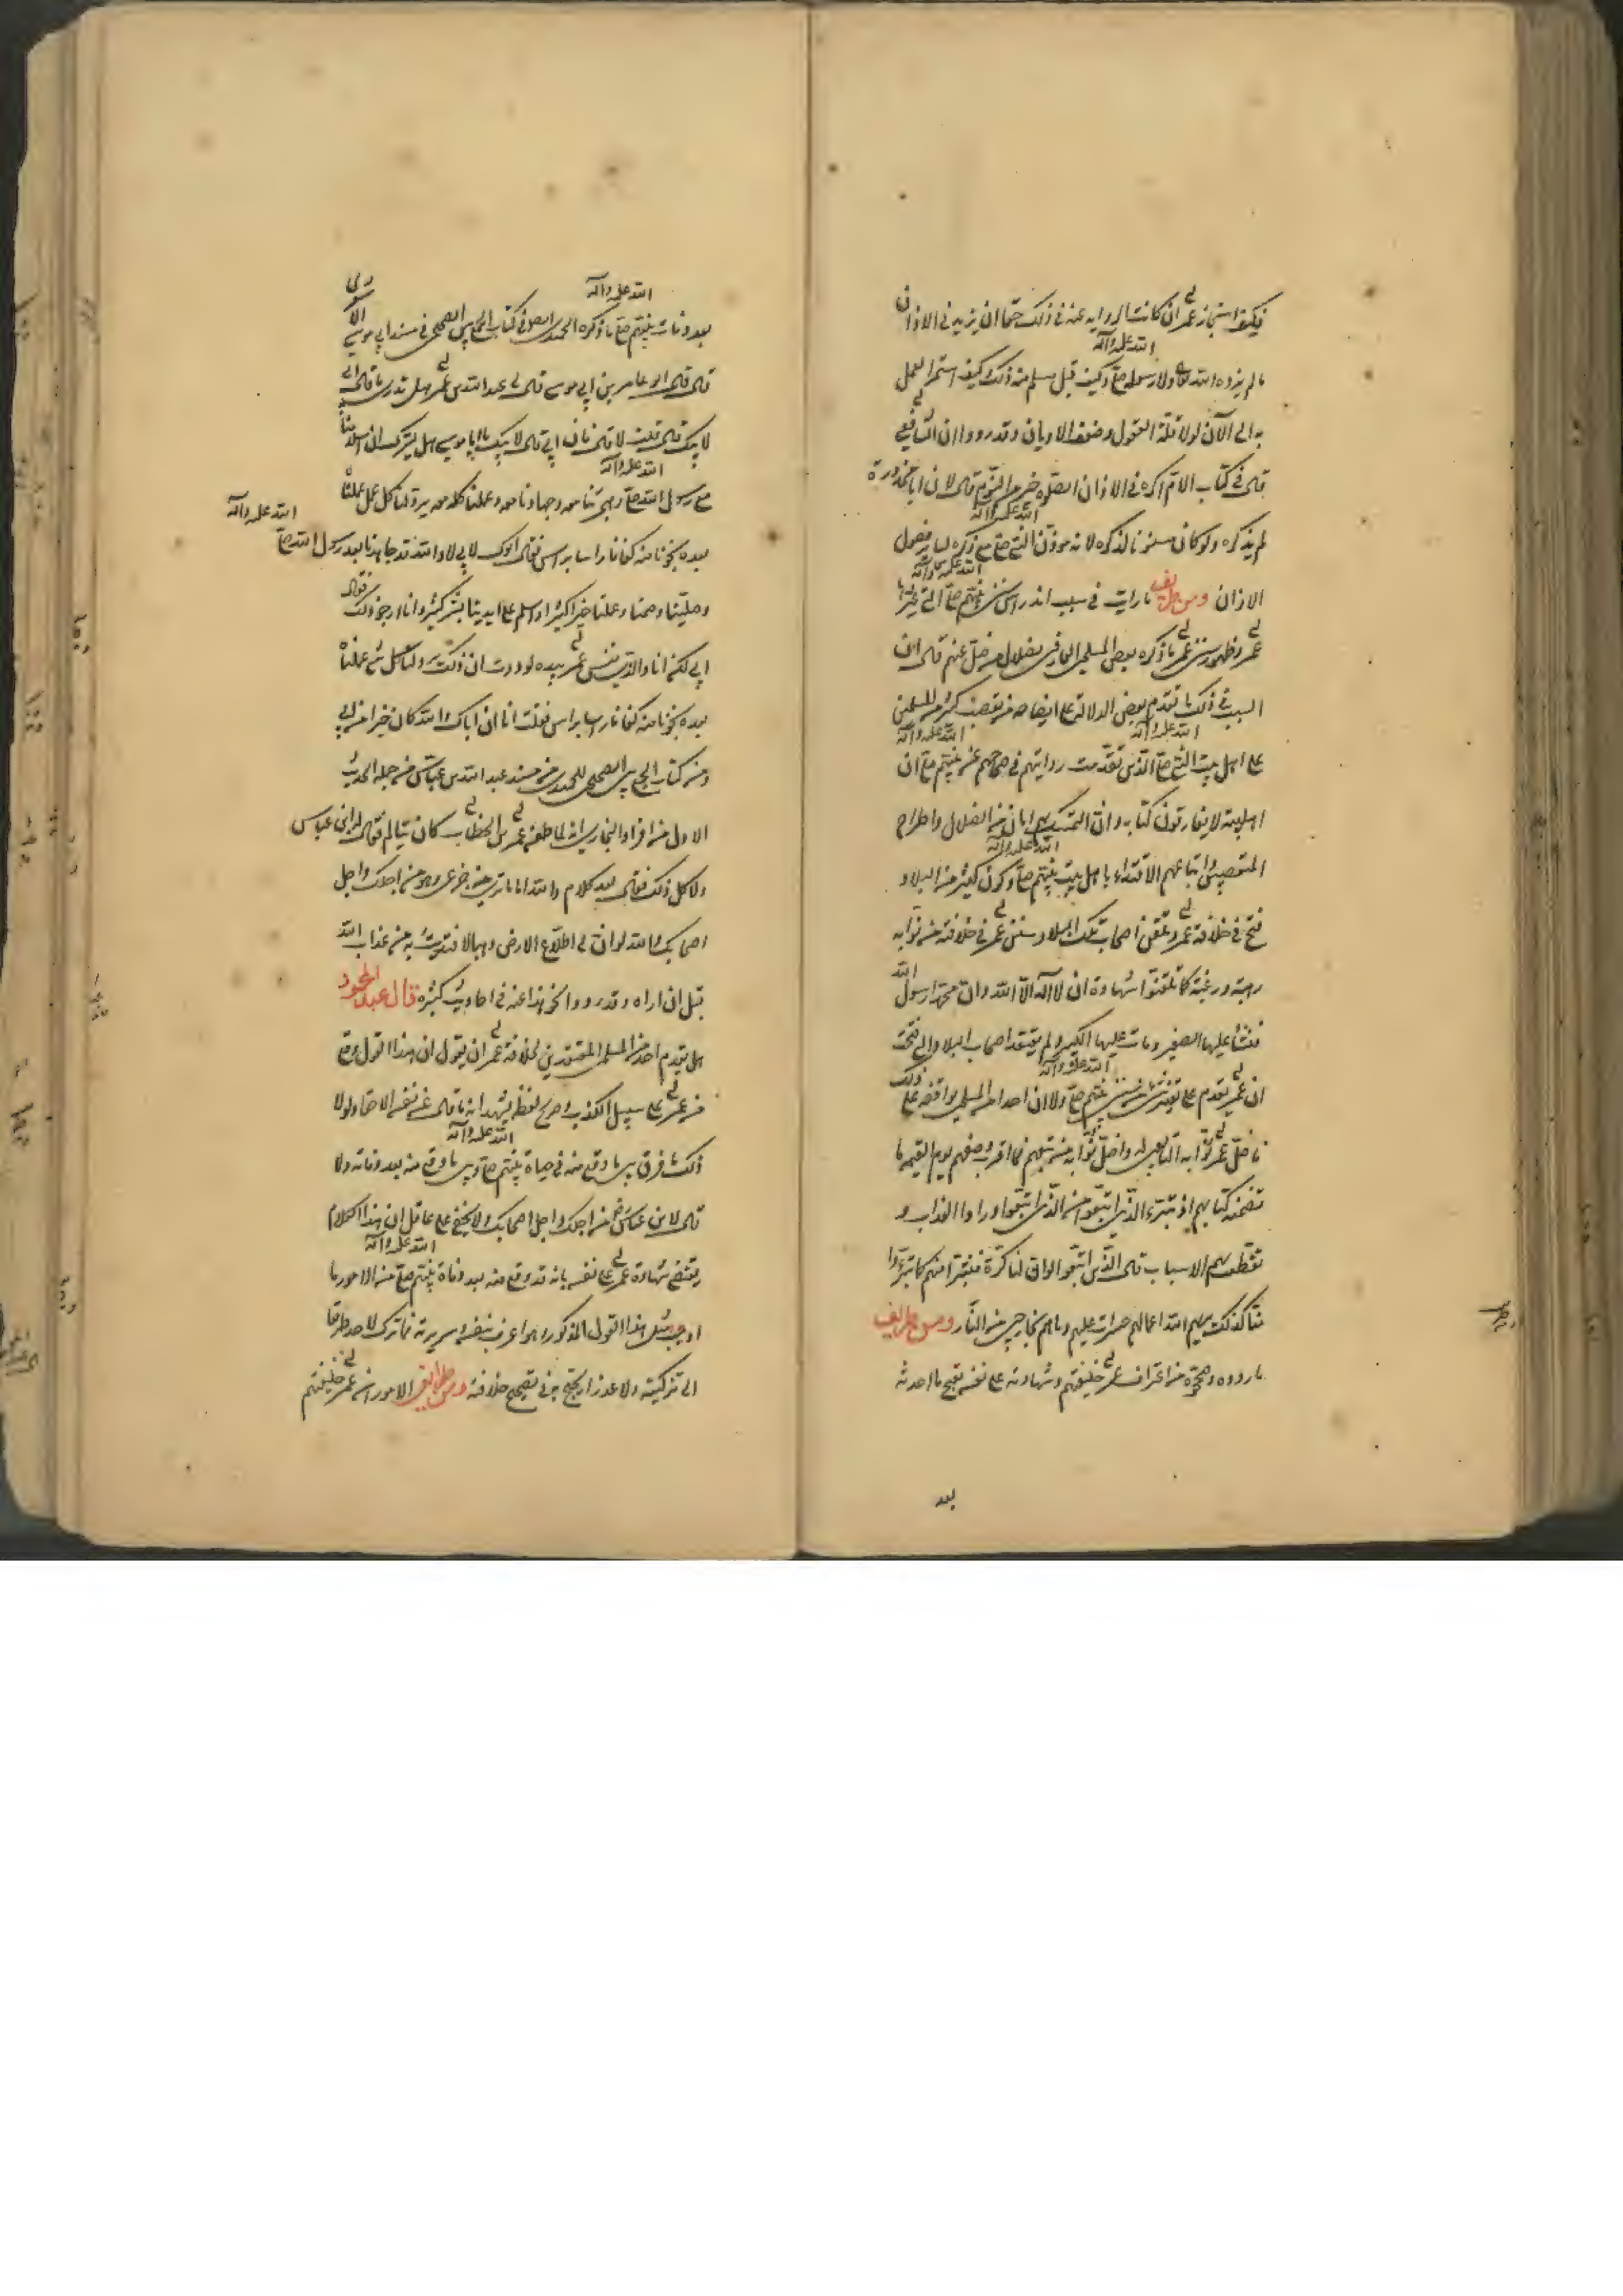 فكيف استجاز عمر ان كانت الرواية عنه في ذلك حقا ان يزيد في الاذان
ما لم يزده الله تعالى ولا رسوله صلى الله عليه وآله وكيف قبل منه ذلك وكيف استمر العمل
به الى الآن لولا قلة العقول وضعف الاديان وقد رووا ان الشافعي
قال في كتاب الام اكره في الاذان الصلوة خير من النوم قال لان ابا محذورة
لم يذكره ولو كان مسنونا لذكره لانه مؤذن النبي صلى الله عليه وآله مع ذكره لساير فصول
الاذان ومن طريف ما رايت في سبب اندراس سنن نبيهم صلى الله عليه وآله التي غيرها
عمر وظهور سنن عمر ما ذكره بعض المسلمين العارفين بضلال من ضل عنهم قال ان
السبب في ذلك ما تقدم بعض الدلالة على ايضاحه من تعصب كثير من المسلمين
على اهل بيت النبي صلى الله عليه وآله الذين تقدمت روايتهم في صحاحهم عن نبيهم صلى الله عليه وآله ان
اهل بيته لا يفارقون كتابه وان التمسك بهم امان من الضلال واطراح
المتعصبين واتباعهم الاقتداء باهل بيت نبيهم صلى الله عليه وآله وكون كثير من البلاد
فتح في خلافة عمر وتلقن اصحاب تلك البلاد سنن عمر في خلافته من نوابه
رهبة ورغبة كما تلقنوا شهادة ان لا اله الا الله وان محمدا رسول الله
فنشأ عليها الصغير ومات عليها الكبير ولم يعتقد اصحاب البلاد التي فتحت
ان عمر يقدم على تغيير شيء من سنن نبيهم صلى الله عليه وآله ولا ان احدا من المسلمين يوافقه على ذلك
فاضل عمر نوابه التابعين له واضل نوابه من تبعهم فما اقرب وصفهم يوم القيمة بما
تضمنه كتابهم اذ تبرء الذين اتبعوا من الذين اتبعوا وراوا العذاب و
تقطعت بهم الاسباب وقال الذين اتبعوا لو ان لنا كرة فنتبرأ منهم كما تبرؤا
منا كذلك يريهم الله اعمالهم حسرات عليهم وما هم بخارجين من النار ومن طريف
ما رووه وصححوه من اعتراف عمر خليفتهم وشهادته على نفسه بقبح ما احدثه
بعد
بعد وفات نبيهم صلى الله عليه وآله ما ذكره الحميدي ايضا في كتاب الجمع بين الصحيحين في مسند ابي موسى الاشعري
قال قال ابو عامر بن ابي موسى قال لي عبد الله بن عمر هل تدري ما قال ابي
لابيك قال قلت لا قال فان ابي قال لابيك يا ابا موسى هل يسرك ان اسلامنا
مع رسول الله صلى الله عليه وآله وهجرتنا معه وجهادنا معه وعملنا كله معه يرد لنا كل عمل عملناه
بعده نجونا منه كفافا راسا براس فقال ابوك لابي لا والله قد جاهدنا بعد رسول الله صلى الله عليه وآله
وصلينا وصمنا وعملنا خيرا كثيرا واسلم على ايدينا بشر كثير وانا لنرجو ذلك فقال
ابي لكني انا والذي نفس عمر بيده لوددت ان ذلك يرد لنا وكل شيء عملناه
بعده نجونا منه كفافا راسا براس فقلت انا ان اباك والله كان خيرا من ابي
ومن كتاب الجمع بين الصحيحين للحميدي من مسند عبد الله بن عباس من جملة الحديث
الاول من افراد البخاري انه لما طعن عمر بن الخطاب كان يتألم فقال له ابن عباس
ولا كل ذلك فقال بعد كلام واما ما ترى من جزعي فهو من اجلك واجل
اصحابك والله لو ان لي طلاع الارض ذهبا لافتديت به من عذاب الله
قبل ان اراه وقد رووا نحو هذا عنه في احاديث كثيرة قال عبد المحمود
هل يقدم احد من المسلمين المعتقدين لخلافة عمر ان يقول ان هذا القول وقع
من عمر على سبيل الكذب وصريح لفظه يشهد انه ما قال عن نفسه الا حقا ولولا
ذلك ما فرق بين ما وقع منه في حياة نبيهم صلى الله عليه وآله وبين ما وقع منه بعد وفاته ولا
قال لابن عباس من اجلك واجل اصحابك ولا يخفى على عاقل ان هذا الكلام
يقتضي شهادة عمر على نفسه بانه قد وقع منه بعد وفاة نبيهم صلى الله عليه وآله من الامور ما
اوجب مثل هذا القول المذكور وهو اعرف بنفسه وسريرته فما ترك لاحد طريقا
الى تزكيته ولا عذرا يحتج به في تصحيح خلافته ومن طرايف الامور ان عمر خليفتهم